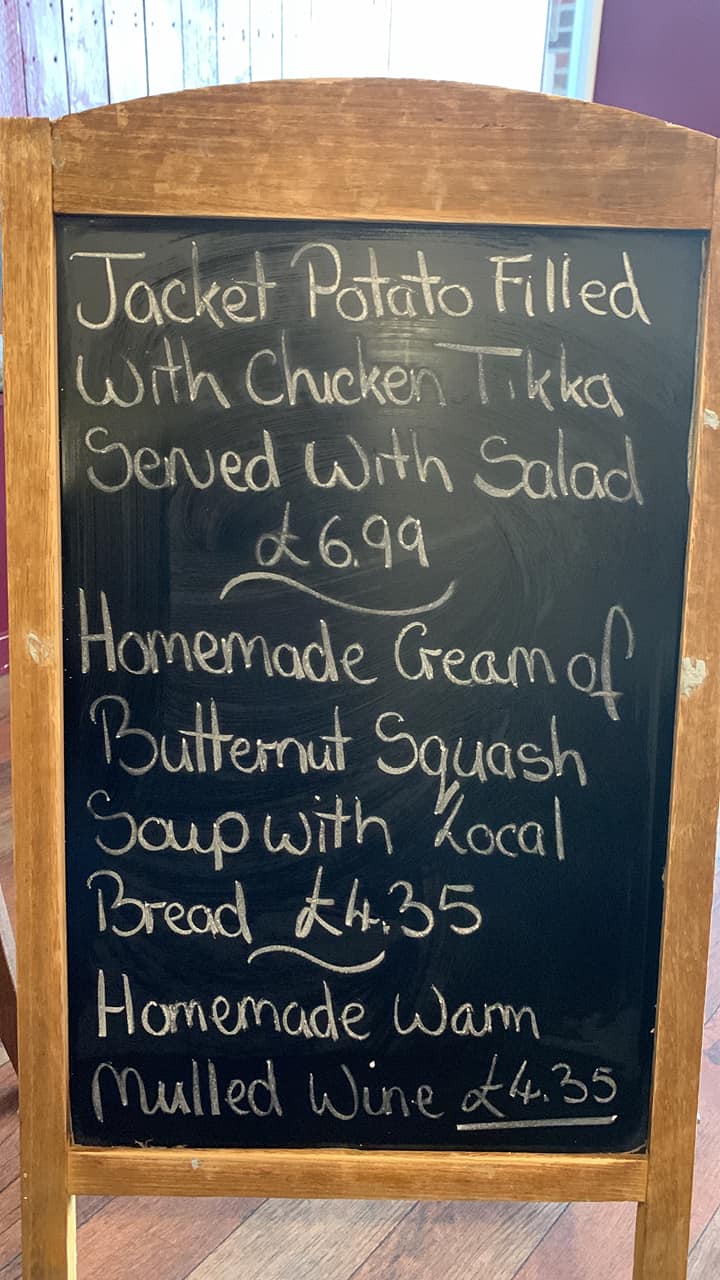 Jacket Potato Filled
With Chicken Tikka
Served With Salad
£6.99
Homemade Cream of
Butternut Squash
Soup with Local
Bread £4.35
Homemade Warm
Mulled Wine £4.35